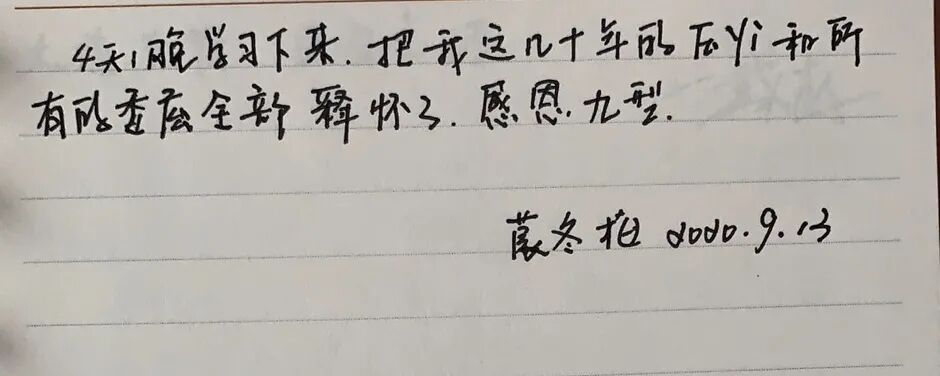 4天1晚学习下来.把我这几十年的压yi和所
有的委屈全部释怀了.感恩九型.
蒙冬 2020.9.13